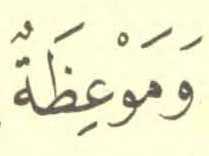 وَمَوْعِظَةٌ